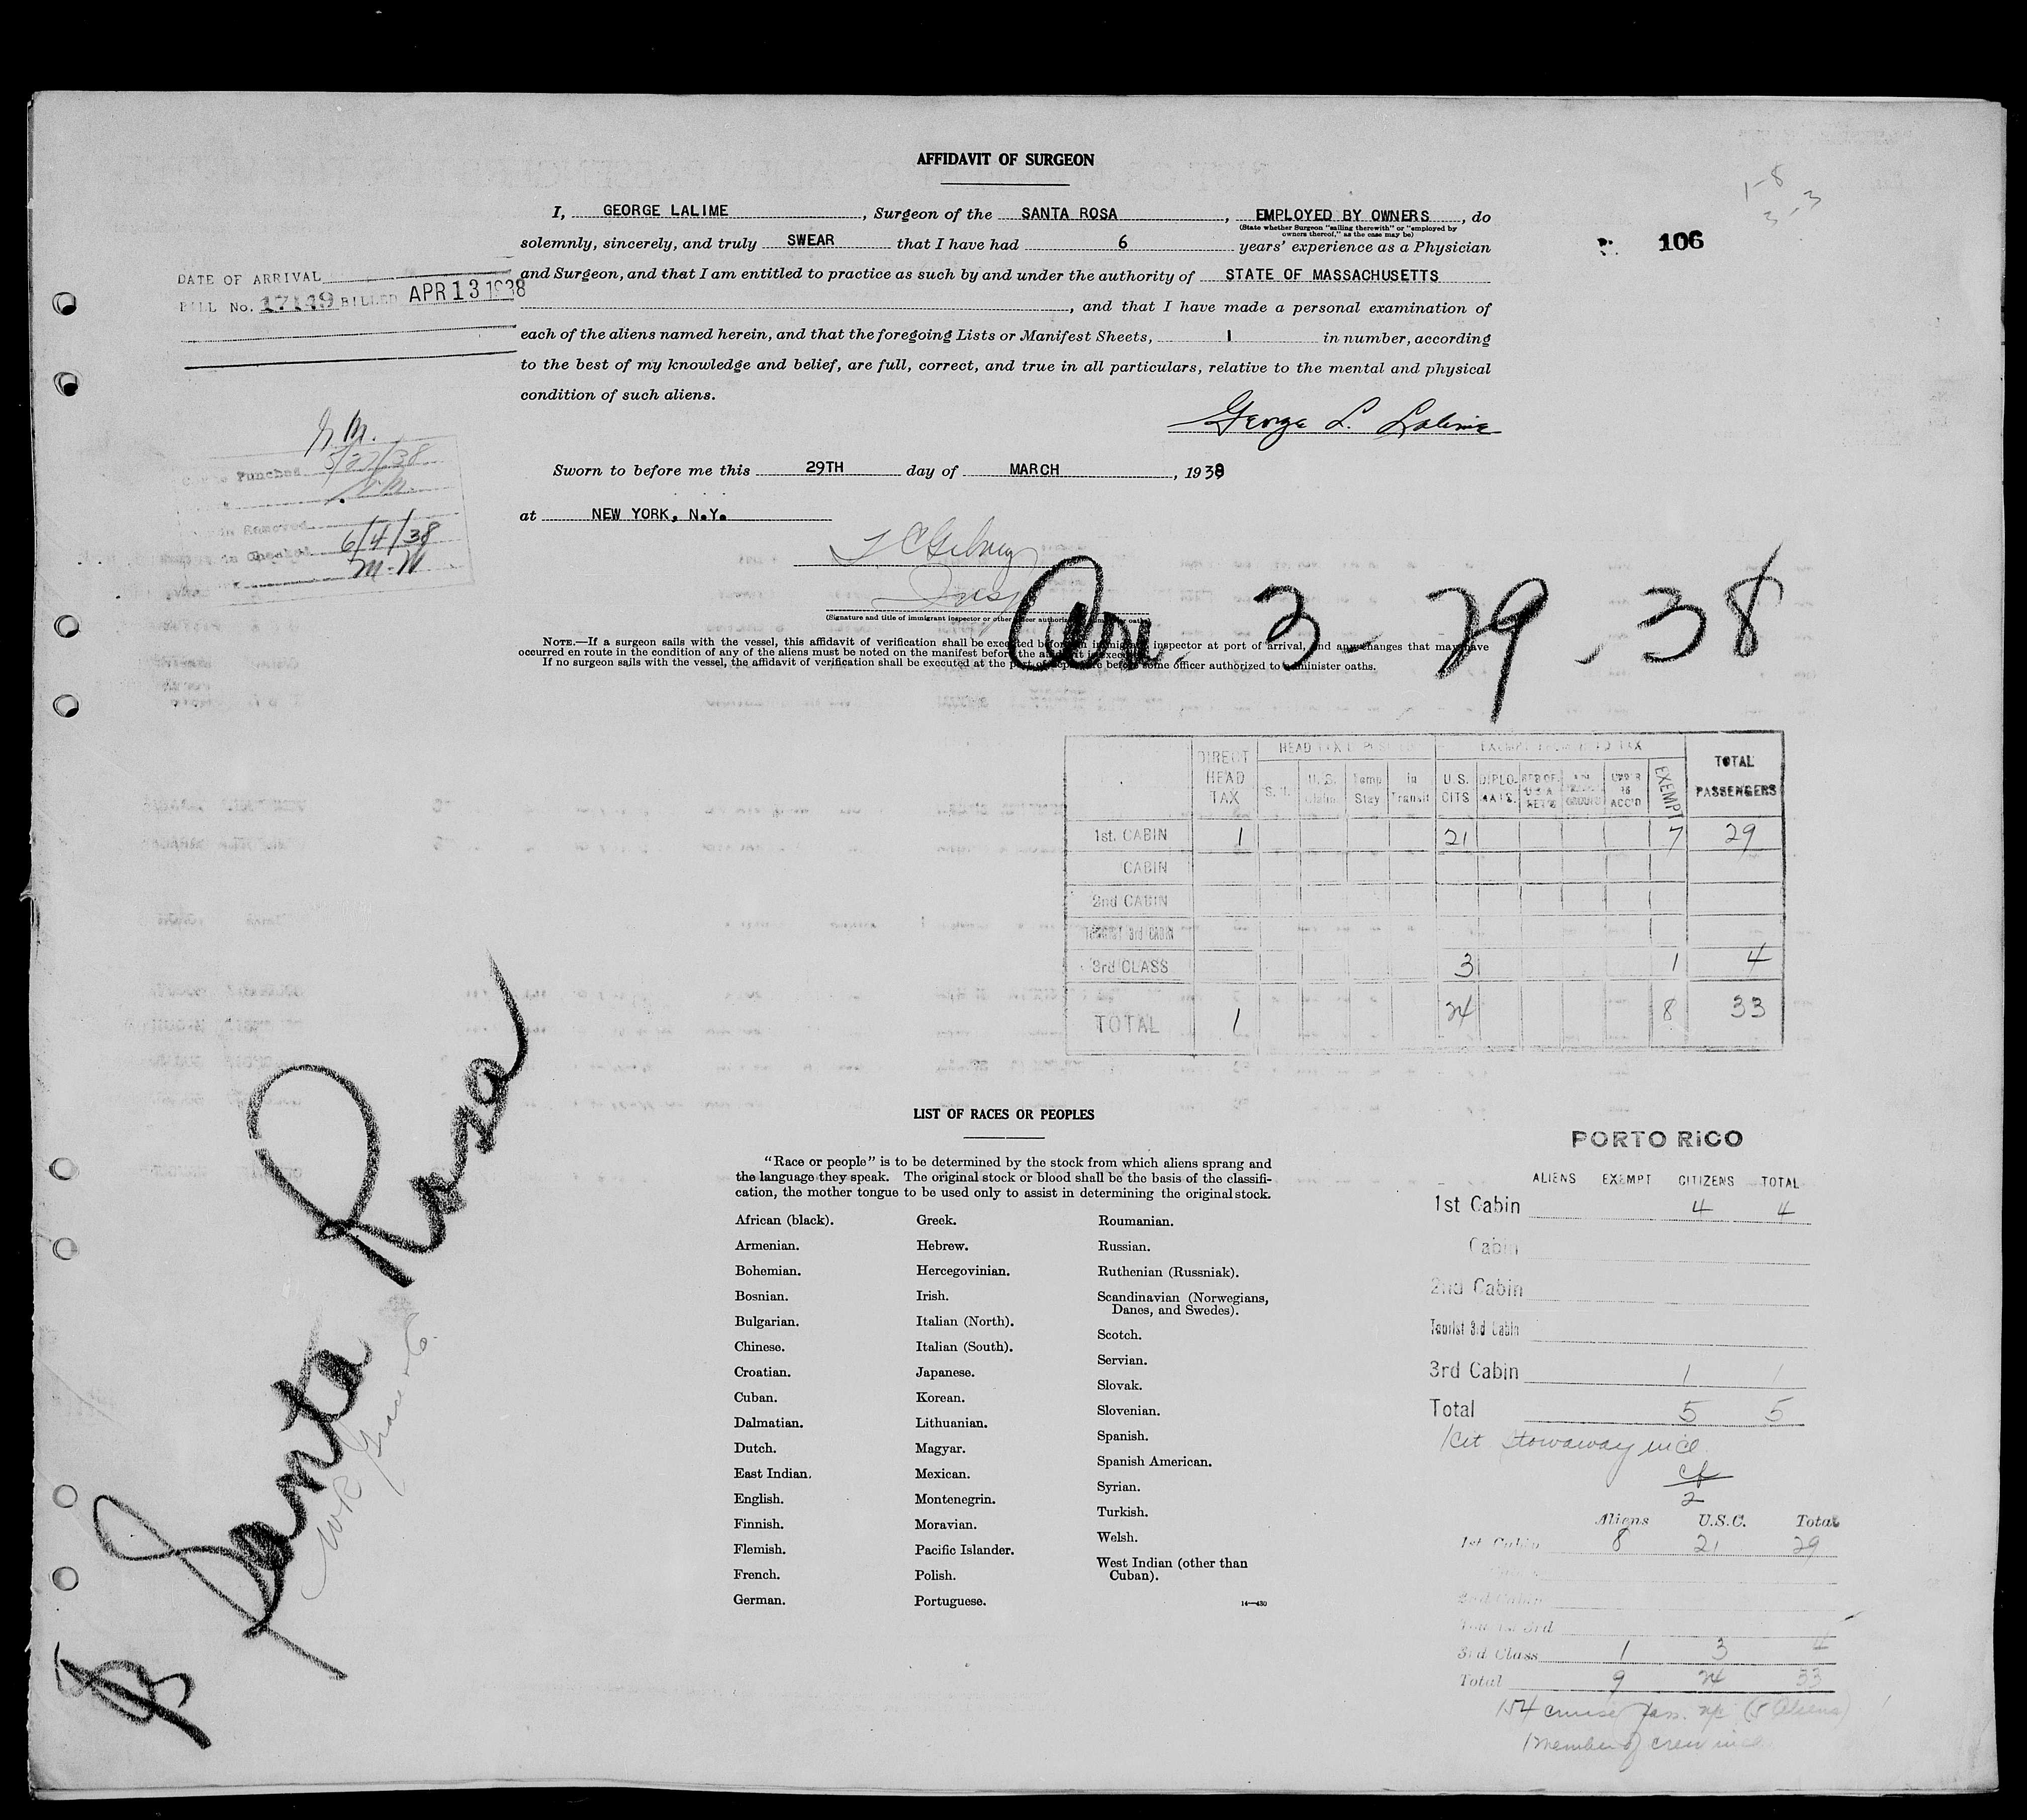 AFFIDAVIT OF SURGEON
1-8
3-3
I, GEORGE LALIME, Surgeon of the SANTA ROSA, EMPLOYED BY OWNERS, do
(State whether Surgeon "sailing therewith" or "employed by
owners thereof," as the case may be)
solemnly, sincerely, and truly SWEAR that I have had 6 years' experience as a Physician
106
and Surgeon, and that I am entitled to practice as such by and under the authority of STATE OF MASSACHUSETTS
DATE OF ARRIVAL
BILL No. 17149 BILLED APR 13 1938
, and that I have made a personal examination of
each of the aliens named herein, and that the foregoing Lists or Manifest Sheets, 1 in number, according
to the best of my knowledge and belief, are full, correct, and true in all particulars, relative to the mental and physical
condition of such aliens.
George L. Lalime
Punched 5/27/38
Removed
6/4/38
M-W
Sworn to before me this 29TH day of MARCH, 1938
at NEW YORK, N.Y.
Insp
3-29-38
(Signature and title of immigrant inspector or other officer authorized to administer oaths)
NOTE.—If a surgeon sails with the vessel, this affidavit of verification shall be executed before an immigrant inspector at port of arrival, and any changes that may have
occurred en route in the condition of any of the aliens must be noted on the manifest before the affidavit is executed.
If no surgeon sails with the vessel, the affidavit of verification shall be executed at the port of departure before some officer authorized to administer oaths.
DIRECT HEAD TAX HEAD TAX DEPOSITED EXEMPT FROM HEAD TAX TOTAL PASSENGERS
U.S. Temp Stay In Transit U.S. CITS DIPLOMATS UNDER 16 ACC'D EXEMPT
1st. CABIN 1 21 7 29
CABIN
2nd CABIN
TOURIST 3rd CABIN
3rd CLASS 3 1 4
TOTAL 1 24 8 33
Santa Rosa
LIST OF RACES OR PEOPLES
"Race or people" is to be determined by the stock from which aliens sprang and
the language they speak. The original stock or blood shall be the basis of the classifi-
cation, the mother tongue to be used only to assist in determining the original stock.
African (black).
Armenian.
Bohemian.
Bosnian.
Bulgarian.
Chinese.
Croatian.
Cuban.
Dalmatian.
Dutch.
East Indian.
English.
Finnish.
Flemish.
French.
German.
Greek.
Hebrew.
Hercegovinian.
Irish.
Italian (North).
Italian (South).
Japanese.
Korean.
Lithuanian.
Magyar.
Mexican.
Montenegrin.
Moravian.
Pacific Islander.
Polish.
Portuguese.
Roumanian.
Russian.
Ruthenian (Russniak).
Scandinavian (Norwegians,
Danes, and Swedes).
Scotch.
Servian.
Slovak.
Slovenian.
Spanish.
Spanish American.
Syrian.
Turkish.
Welsh.
West Indian (other than
Cuban).
14—430
PORTO RICO
ALIENS EXEMPT CITIZENS TOTAL
1st Cabin 4 4
Cabin
2nd Cabin
Tourist 3rd Cabin
3rd Cabin 1 1
Total 5 5
1 cit stowaway incl
Aliens U.S.C. Total
1st Cabin 8 21 29
2nd Cabin
Tourist 3rd
3rd Class 1 3 4
Total 9 24 33
154 cruise pass. (5 Aliens)
1 member of crew incl